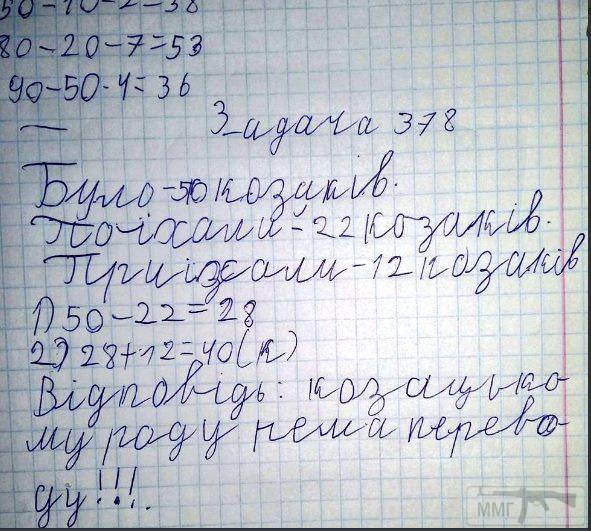 50-10-2=38
80-20-7=53
90-50-4=36
Задача 378
Було-50 козаків.
Поїхали-22 козаків.
Приїхали-12 козаків
1) 50-22=28
2) 28+12=40(к)
Відповідь: козацько-
му роду нема перево-
ду!!!.
ММГ